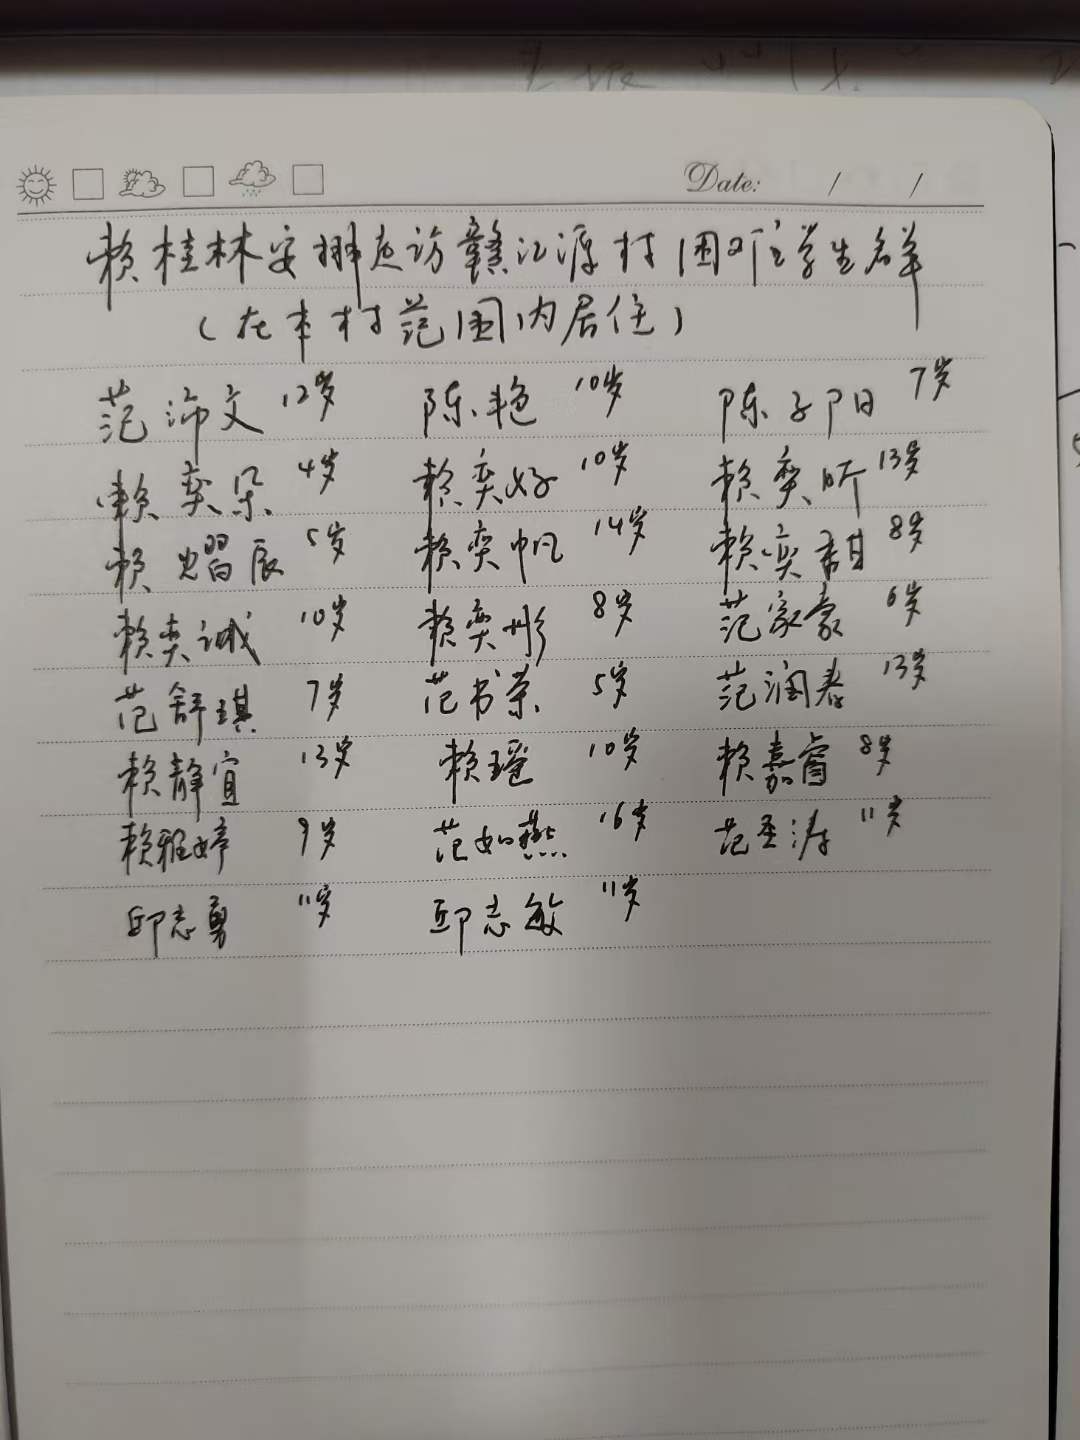 Date: / /
赖桂林安排走访赣江源村困难学生名单
(在本村范围内居住)
范沛文 12岁 陈艳 10岁 陈子阳 7岁
赖奕朵 4岁 赖奕好 10岁 赖奕昕 13岁
赖熠辰 5岁 赖奕帆 14岁 赖奕祺 8岁
赖奕诚 10岁 赖奕彤 8岁 范家豪 6岁
范舒琪 7岁 范书荣 5岁 范润春 13岁
赖静宜 13岁 赖瑶 10岁 赖嘉睿 8岁
赖雅婷 9岁 范如燕 16岁 范圣涛 11岁
邱志勇 11岁 邱志敏 11岁